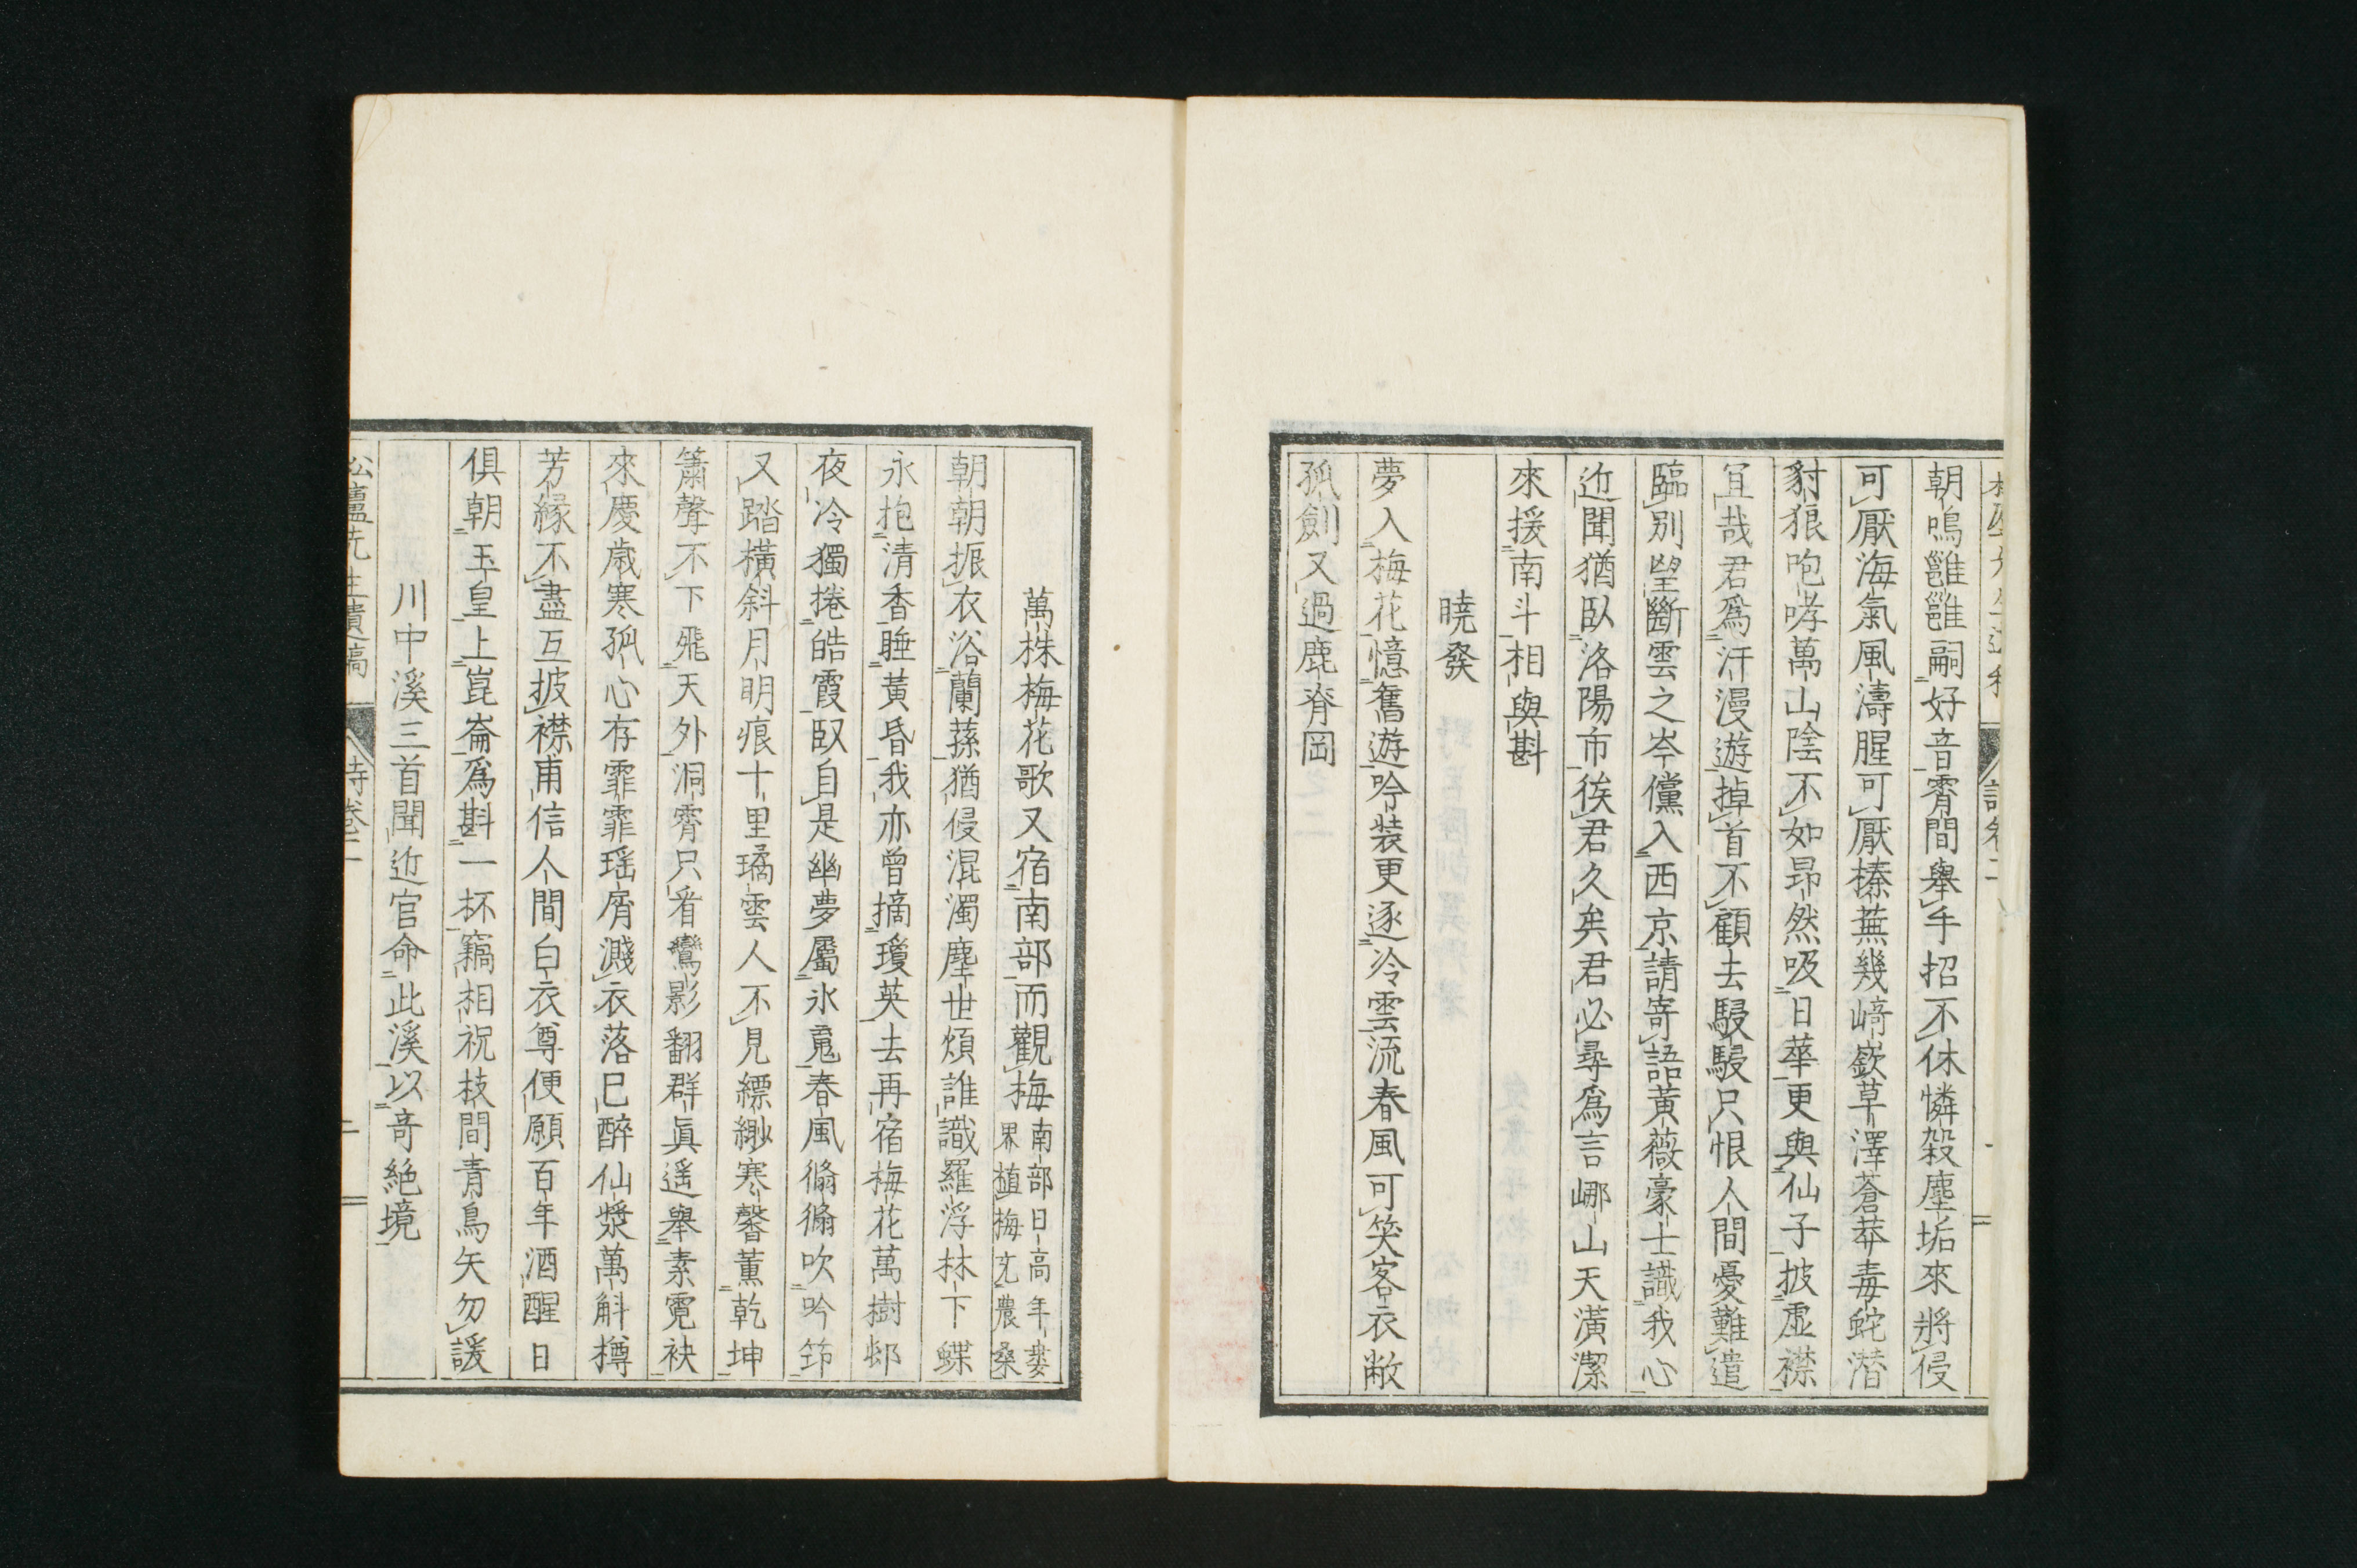 朝鳴雝雝嗣好音霄間舉手招不休憐殺塵垢來將侵
可厭海氣風濤腥可厭榛蕪幾﨑嶔草澤蒼莽毒蛇潛
豺狼咆哮萬山陰不如昂然吸日華更與仙子披虛襟
宜哉君爲汗漫遊掉首不顧去駸駸只恨人間憂難遣
臨別望斷雲之岑儻入西京請寄語黃薇豪士識我心
近聞猶臥洛陽市徯君久矣君必尋爲言㟓山天潢潔
來援南斗相與斟
曉發
夢入梅花憶舊遊吟裝更逐冷雲流春風可笑客衣敝
孤劍又過鹿脊岡
萬株梅花歌又宿南部而觀梅南部日高年婁界植梅充農桑
朝朝振衣浴蘭蓀猶侵混濁塵世煩誰識羅浮林下蝶
永抱清香睡黃昏我亦曾摘瓊英去再宿梅花萬樹邨
夜冷獨捲皓霞臥自是幽夢屬氷䰟春風翛翛吹吟笻
又踏橫斜月明痕十里璚雲人不見縹緲寒馨薰乾坤
簫聲不下飛天外洞霄只看鸞影翻群眞遥舉素霓袂
來慶歲寒孤心存霏霏瑤屑濺衣落已醉仙漿萬斛樽
芳緣不盡互披襟甫信人間白衣尊便願百年酒醒日
俱朝玉皇上崑崙爲斟一杯竊相祝枝間青鳥矢勿諼
川中溪三首聞近官命此溪以奇絶境
松廬先生遺稿 詩卷二 二